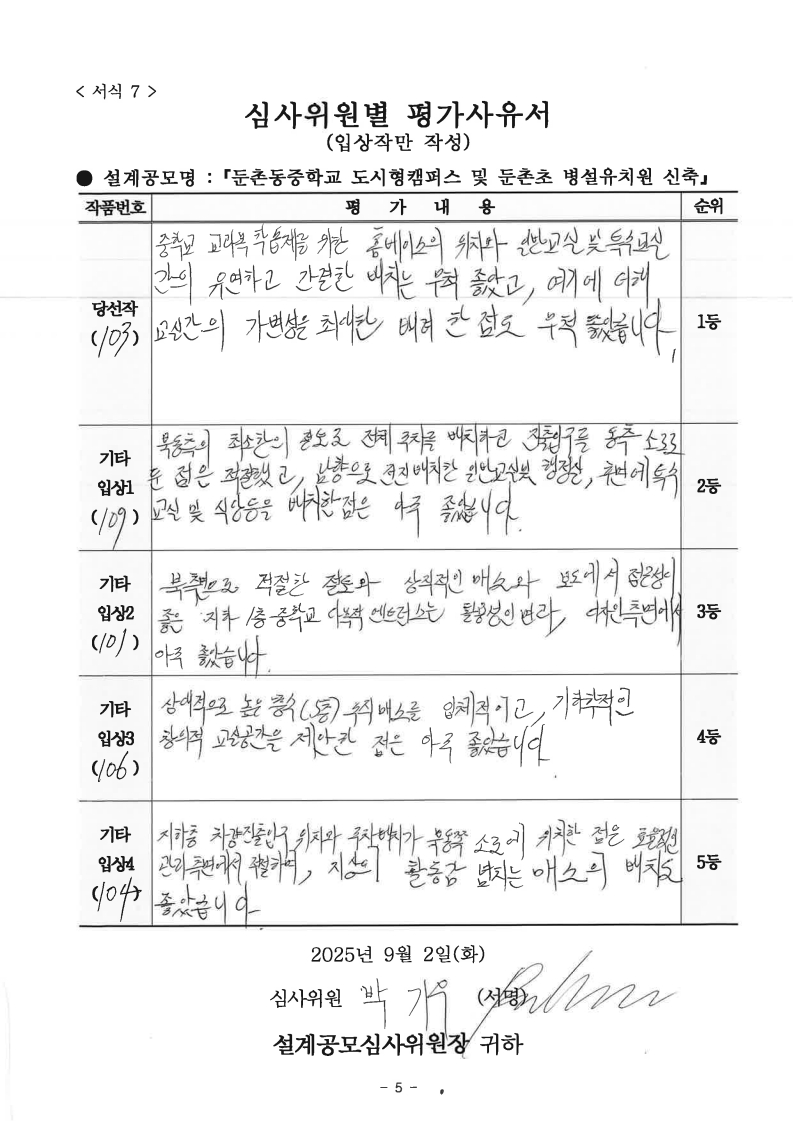 < 서식 7 >
심사위원별 평가사유서
(입상작만 작성)
● 설계공모명 : 『둔촌동중학교 도시형캠퍼스 및 둔촌초 병설유치원 신축』
작품번호 평 가 내 용 순위
당선작
(103)
중학교 교과목 학습제를 위한 홈베이스의 위치와 일반교실 및 특수교실
간의 유연하고 간결한 배치는 무척 좋았고, 여기에 더해
교실간의 가변성을 최대한 배려 한 점도 무척 좋았습니다.
1등
기타
입상1
(109)
북동측의 최소한의 절토로 전체 주차를 배치하고 진출입구를 동측 소로로
둔 점은 적절했고, 남향으로 전진배치한 일반교실및 행정실, 후면에 특수
교실 및 식당등을 배치한 점은 아주 좋았습니다.
2등
기타
입상2
(101)
북측면으로 적절한 절토와 상징적인 매스와 보도에서 접근성이
좋은 지하 1층 중학교 다목적 엔트런스는 활용성인 면과, 디자인 측면에서
아주 좋았습니다.
3등
기타
입상3
(106)
상대적으로 높은 층수(5층) 수직 매스를 입체적이고, 기하학적인
창의적 교실공간을 제안한 점은 아주 좋았습니다
4등
기타
입상4
(104)
지하층 차량진출입구 위치와 주차배치가 북동쪽 소로에 위치한 점은 효율적인
관리측면에서 적절하며, 지상의 활동감 넘치는 매스의 배치도
좋았습니다
5등
2025년 9월 2일(화)
심사위원 박 기우 (서명)
설계공모심사위원장 귀하
- 5 -